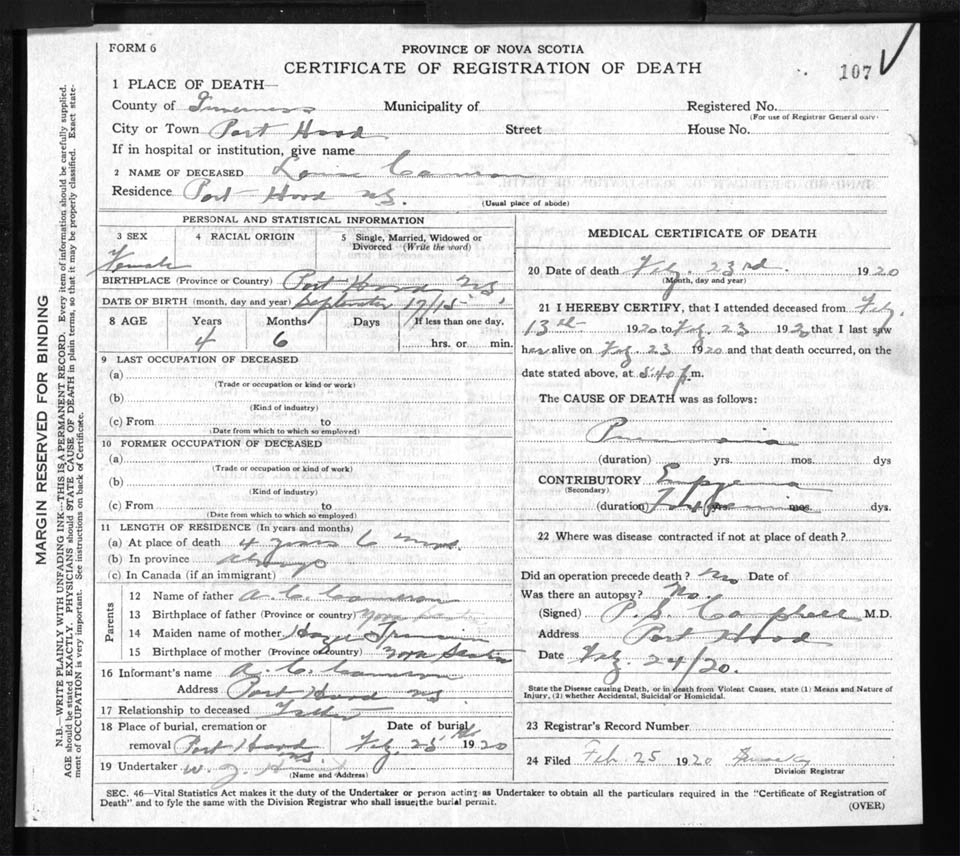 FORM 6
PROVINCE OF NOVA SCOTIA
CERTIFICATE OF REGISTRATION OF DEATH
107
1 PLACE OF DEATH—
County of Inverness Municipality of Registered No.
(For use of Registrar General only.
City or Town Port Hood Street House No.
If in hospital or institution, give name
2 NAME OF DECEASED Cameron
Residence Port Hood NS.
(Usual place of abode)
PERSONAL AND STATISTICAL INFORMATION
3 SEX 4 RACIAL ORIGIN 5 Single, Married, Widowed or Divorced (Write the word)
Female
BIRTHPLACE (Province or Country) Port Hood NS,
DATE OF BIRTH (month, day and year) September 17/15
8 AGE Years Months Days If less than one day.
4 6 hrs. or min.
9 LAST OCCUPATION OF DECEASED
(a)
(Trade or occupation or kind or work)
(b)
(Kind of industry)
(c) From to
(Date from which to which so employed)
10 FORMER OCCUPATION OF DECEASED
(a)
(Trade or occupation or kind of work)
(b)
(Kind of industry)
(c) From to
(Date from which to which so employed)
11 LENGTH OF RESIDENCE (In years and months)
(a) At place of death 4 years 6 mos.
(b) In province always
(c) In Canada (if an immigrant)
Parents
12 Name of father A. C. Cameron
13 Birthplace of father (Province or country) Nova Scotia
14 Maiden name of mother
15 Birthplace of mother (Province or country) Nova Scotia
16 Informant's name A. C. Cameron
Address Port Hood NS
17 Relationship to deceased Father
18 Place of burial, cremation or removal Port Hood NS. Date of burial Feb. 25th 1920
19 Undertaker W. J.
(Name and Address)
MEDICAL CERTIFICATE OF DEATH
20 Date of death Feb. 23rd. 1920
(Month, day and year)
21 I HEREBY CERTIFY, that I attended deceased from Feb.
13th 1920 to Feb. 23 1920 that I last saw
her alive on Feb 23 1920 and that death occurred, on the
date stated above, at 5.40 p.m.
The CAUSE OF DEATH was as follows:
Pneumonia
(duration) yrs. mos. dys
CONTRIBUTORY Empyema
(Secondary)
(duration) yrs. mos. dys.
22 Where was disease contracted if not at place of death?
Did an operation precede death? No Date of
Was there an autopsy? No.
(Signed) P. S. Campbell M.D.
Address Port Hood
Date Feb 24/20.
State the Disease causing Death, or in death from Violent Causes, state (1) Means and Nature of
Injury, (2) whether Accidental, Suicidal or Homicidal.
23 Registrar's Record Number
24 Filed Feb. 25 1920
Division Registrar
SEC. 46—Vital Statistics Act makes it the duty of the Undertaker or person acting as Undertaker to obtain all the particulars required in the "Certificate of Registration of
Death" and to fyle the same with the Division Registrar who shall issue the burial permit.
(OVER)
MARGIN RESERVED FOR BINDING
N.B.—WRITE PLAINLY WITH UNFADING INK—THIS IS A PERMANENT RECORD. Every item of information should be carefully supplied.
AGE should be stated EXACTLY. PHYSICIANS should STATE CAUSE OF DEATH in plain terms, so that it may be properly classified. Exact state-
ment of OCCUPATION is very important. See instructions on back of Certificate.